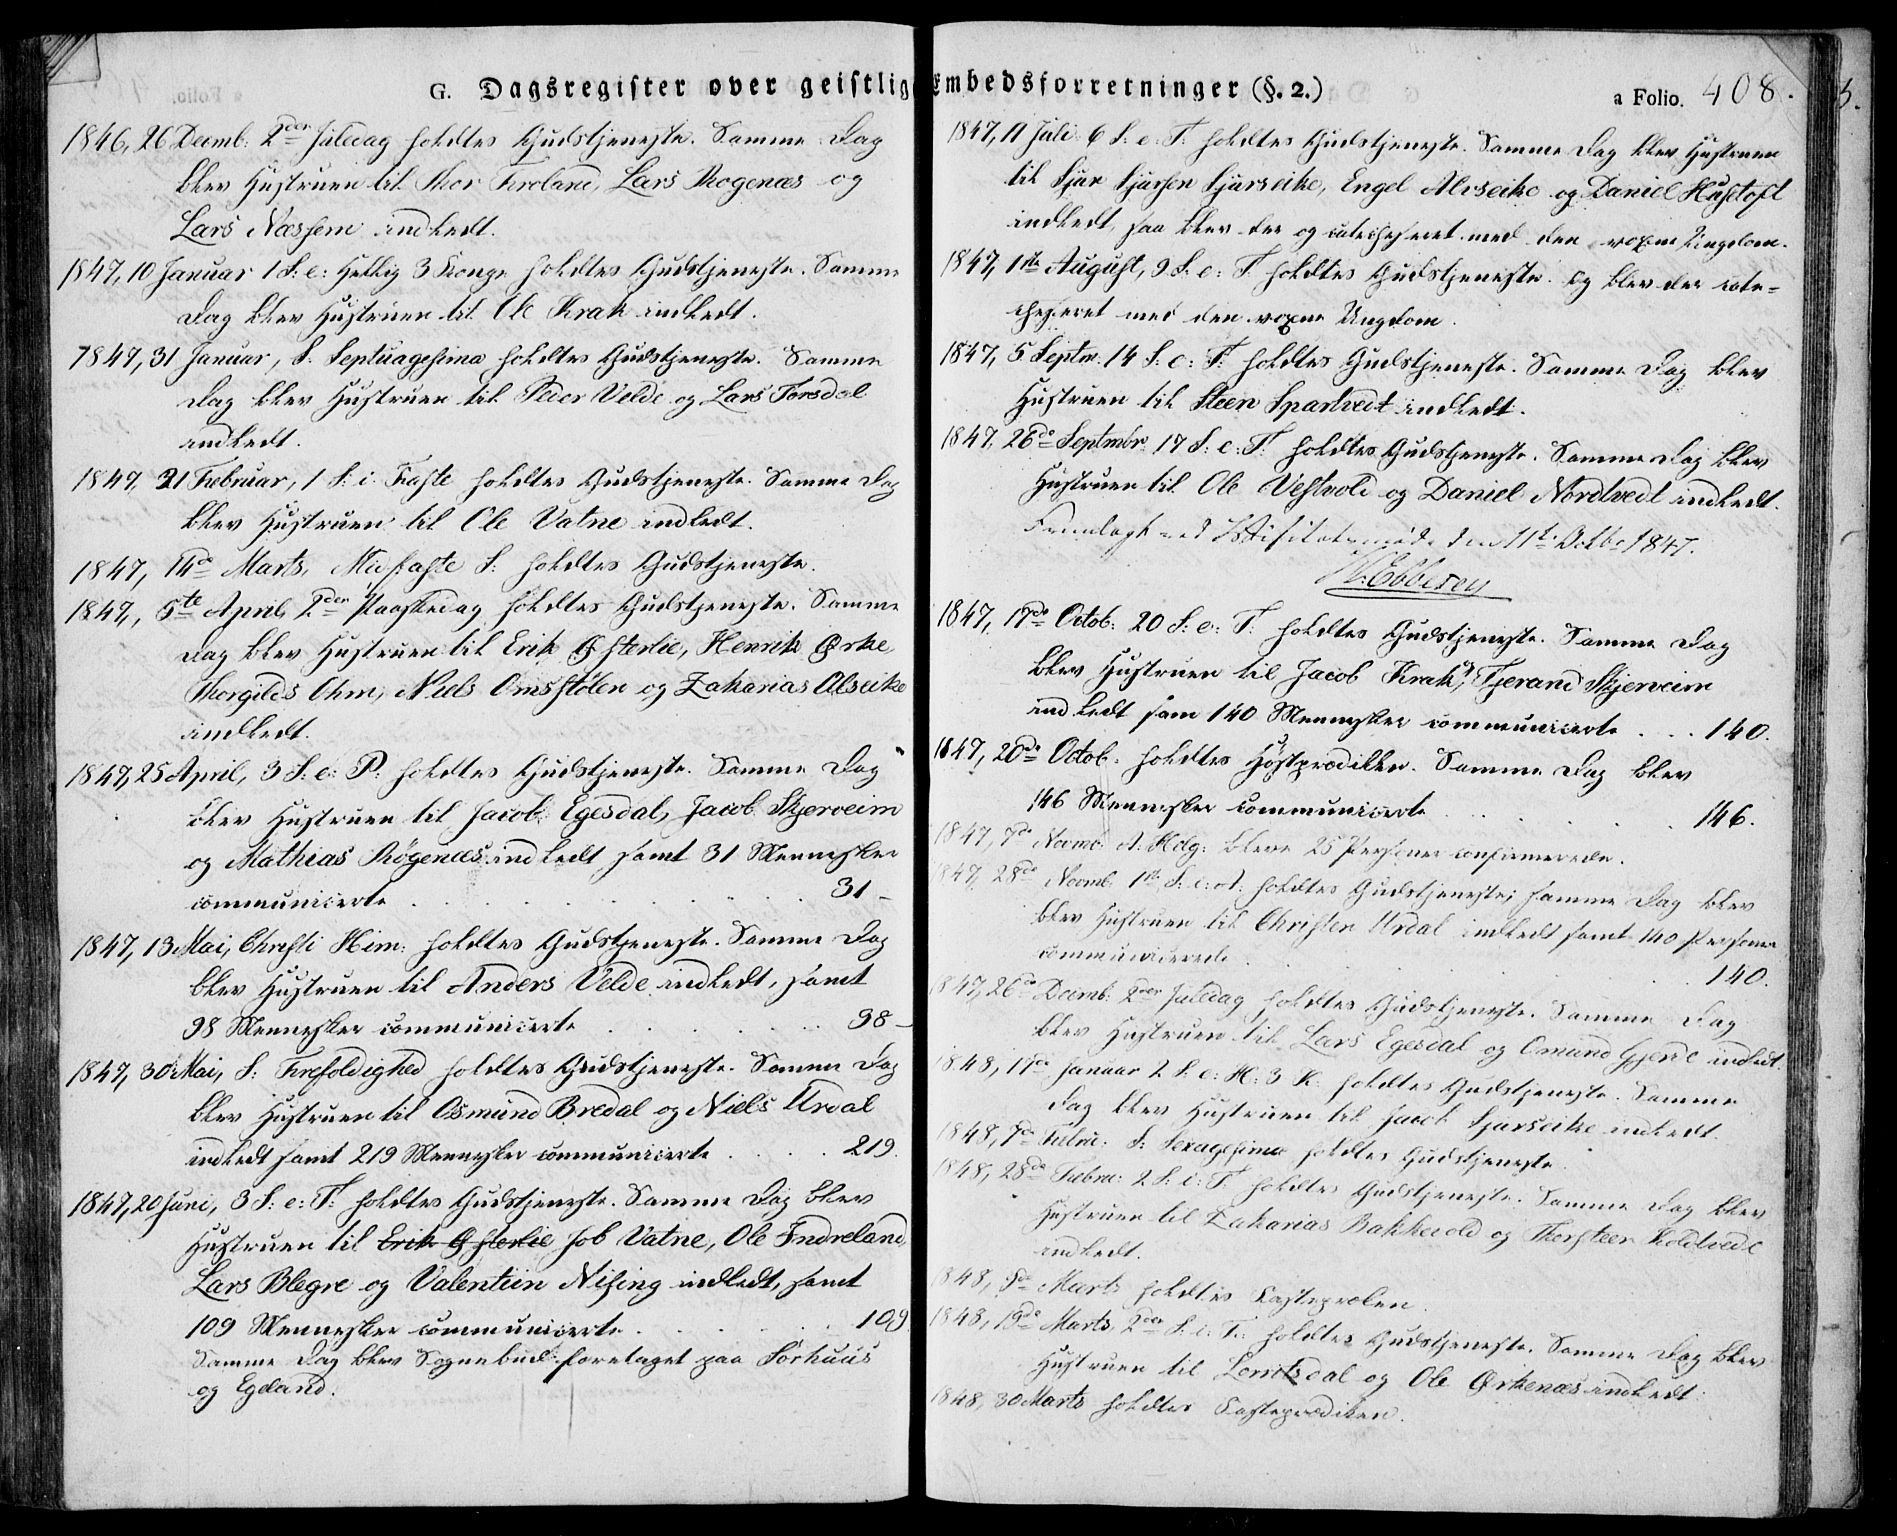 G. Dagsregister over geistlig Embedsforretninger (§. 2.)
a Folio. 408.
1846, 26 Decmb: 2den Juledag holdtes Gudstjeneste. Samme Dag
blev Hustruen til Thor Frøland, Lars Rogenæs og
Lars Næssem indledt.
1847, 10 Januar 1 S: e: Hellig 3 Konge holdtes Gudstjeneste. Samme
Dag blev Hustruen til Ole Krak indledt.
1847, 31 Januar, S. Septuagesima holdtes Gudstjeneste. Samme
Dag blev Hustruen til Peder Velde og Lars Torsdal
indledt.
1847, 21 Februar, 1 S. i Faste holdtes Gudstjeneste. Samme Dag
blev Hustruen til Ole Vatne indledt.
1847, 14de Marts, Midfaste S. holdtes Gudstjeneste.
1847, 5te April, 2den Paaskedag holdtes Gudstjeneste. Samme
Dag blev Hustruen til Erik Østerlie, Henrik Ørke
Thorgilds Ohm, Niels Omsstølen og Zakarias Alseike
indledt.
1847, 25 April, 3 S: e: P: holdtes Gudstjeneste. Samme Dag
blev Hustruen til Jacob Egesdal, Jacob Skjerveim
og Mathias Røgenæs indledt samt 31 Mennesker
communicerte . . . 31 -
1847, 13 Mai, Christi Him: holdtes Gudstjeneste. Samme Dag
blev Hustruen til Anders Velde indledt, samt
98 Mennesker communicerte . . . 98 -
1847, 30 Mai, S: Trefoldighed holdtes Gudstjeneste. Samme Dag
blev Hustruen til Osmund Bredal og Niels Urdal
indledt samt 219 Mennesker communicerte . . . 219.
1847, 20 Juni, 3 S: e: T: holdtes Gudstjeneste. Samme Dag blev
Hustruen til Erik Østerlie Job Vatne, Ole Indreland,
Lars Blegre og Valentiin Nising indledt, samt
109 Mennesker communicerte . . . 109.
Samme Dag blev Sognebud foretaget paa Sørhuus
og Egeland.
1847, 11 Juli 6 S. e. T: holdtes Gudstjeneste. Samme Dag blev Hustruen
til Sjur Sjursen Sjurseike, Engel Alvseike og Daniel Hustoft
indledt, saa blev der og catechiseret med den voxne Ungdom.
1847, 1ste August, 9 S. e: T. holdtes Gudstjeneste. Og blev der cate=
chiseret med den voxne Ungdom.
1847, 5 Septm. 14 S. e: T: holdtes Gudstjeneste. Samme Dag blev
Hustruen til Steen Spartvedt indledt.
1847, 26de Septmbr. 17 S. e: T: holdtes Gudstjeneste. Samme Dag blev
Hustruen til Ole Vestvold og Daniel Nordtvedt indledt.
Fremlagt ved Visitatsmøde den 11te Octbr 1847.
Ebbesen
1847, 17de Octob: 20 S: e: T: holdtes Gudstjeneste. Samme Dag
blev Hustruen til Jacob Krak, og Tjerand Skjerveim
indledt samt 140 Mennesker communicerte . . . 140.
1847, 20de Octob. holdtes Høstprædiken. Samme Dag blev
146 Mennesker communicerte . . . 146.
1847, 7de Novmb. A. Helg: bleve 25 Personer confirmerede.
1847, 28de Novmb. 1ste S: i: A: holdtes Gudstjeneste; samme Dag blev
blev Hustruen til Christen Urdal indledt samt 140 Personer
communicerede . . . 140.
1847, 26de Decmb: 2den Juledag holdtes Gudstjeneste. Samme Dag
blev Hustruen til Lars Egesdal og Omund Gjerde indledt.
1848, 17de Januar 2 S. e: H: 3 K: holdtes Gudstjeneste. Samme
Dag blev Hustruen til Jacob Sjurseike indledt.
1848, 7de Febru: S: Sexagesima holdtes Gudstjeneste.
1848, 28de Febru: 2 S: i: F: holdtes Gudstjeneste. Samme Dag blev
Hustruen til Zakarias Bakkevold og Thorsteen Koldtvedt
indledt.
1848, 8de Marts holdtes Fasteprædiken.
1848, 19de Marts, 2den S. i: F: holdtes Gudstjeneste. Samme Dag blev
Hustruen til og Ole Ørkenæs indledt.
1848, 30 Marts holdtes Fasteprædiken.